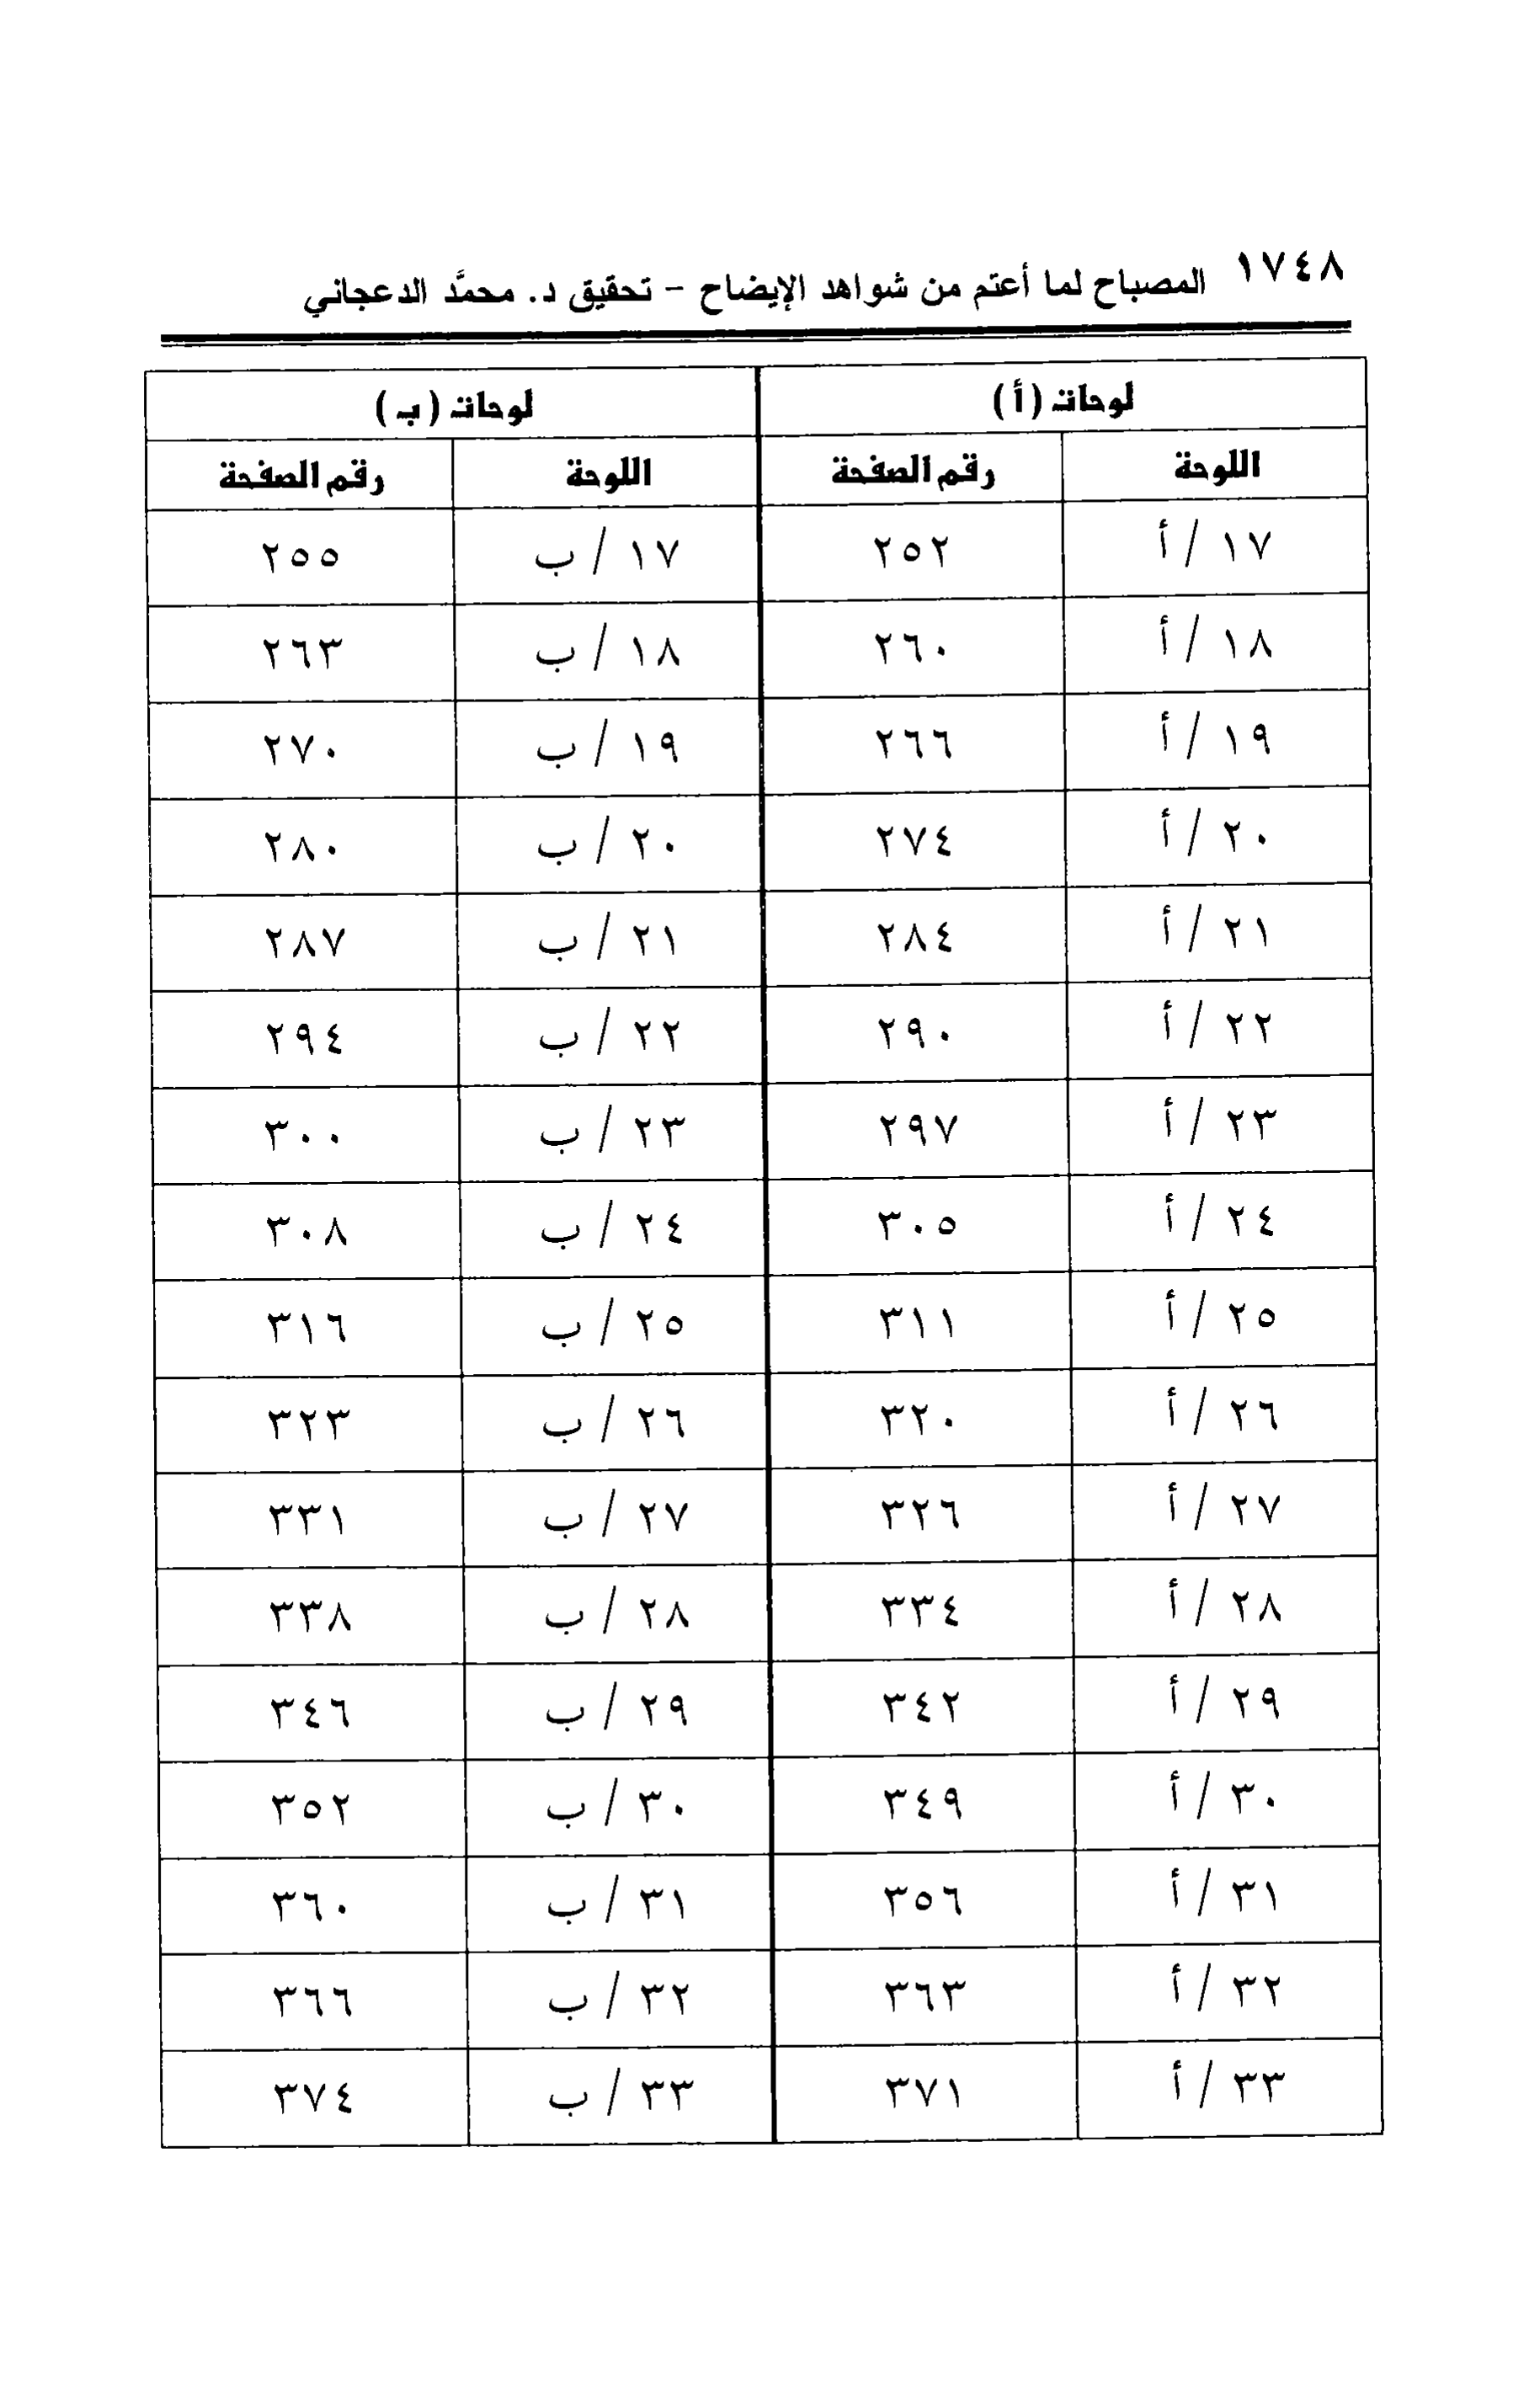 ١٧٤٨ المصباح لما أعتم من شواهد الإيضاح - تحقيق د. محمَّد الدعجاني
لوحات (أ) لوحات (بـ)
اللوحة رقم الصفحة اللوحة رقم الصفحة
١٧ / أ ٢٥٢ ١٧ / ب ٢٥٥
١٨ / أ ٢٦٠ ١٨ / ب ٢٦٣
١٩ / أ ٢٦٦ ١٩ / ب ٢٧٠
٢٠ / أ ٢٧٤ ٢٠ / ب ٢٨٠
٢١ / أ ٢٨٤ ٢١ / ب ٢٨٧
٢٢ / أ ٢٩٠ ٢٢ / ب ٢٩٤
٢٣ / أ ٢٩٧ ٢٣ / ب ٣٠٠
٢٤ / أ ٣٠٥ ٢٤ / ب ٣٠٨
٢٥ / أ ٣١١ ٢٥ / ب ٣١٦
٢٦ / أ ٣٢٠ ٢٦ / ب ٣٢٣
٢٧ / أ ٣٢٦ ٢٧ / ب ٣٣١
٢٨ / أ ٣٣٤ ٢٨ / ب ٣٣٨
٢٩ / أ ٣٤٢ ٢٩ / ب ٣٤٦
٣٠ / أ ٣٤٩ ٣٠ / ب ٣٥٢
٣١ / أ ٣٥٦ ٣١ / ب ٣٦٠
٣٢ / أ ٣٦٣ ٣٢ / ب ٣٦٦
٣٣ / أ ٣٧١ ٣٣ / ب ٣٧٤